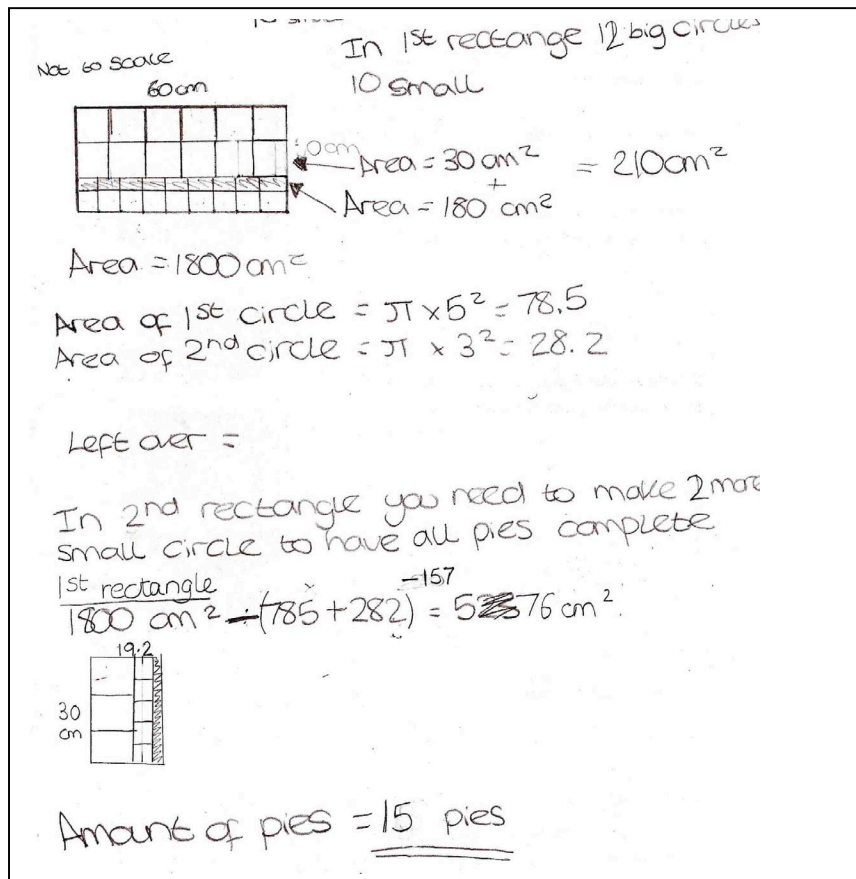 In 1st rectange 12 big circles
10 small
Not to scale
60cm
Area = 30 cm² = 210cm²
+
Area = 180 cm²
Area = 1800 cm²
Area of 1st circle = π x 5² = 78.5
Area of 2nd circle = π x 3² = 28.2
Left over =
In 2nd rectangle you need to make 2 more
small circle to have all pies complete
1st rectangle
1800 cm² - (785 + 282) - 157 = 576 cm².
19.2
30
cm
Amount of pies = 15 pies